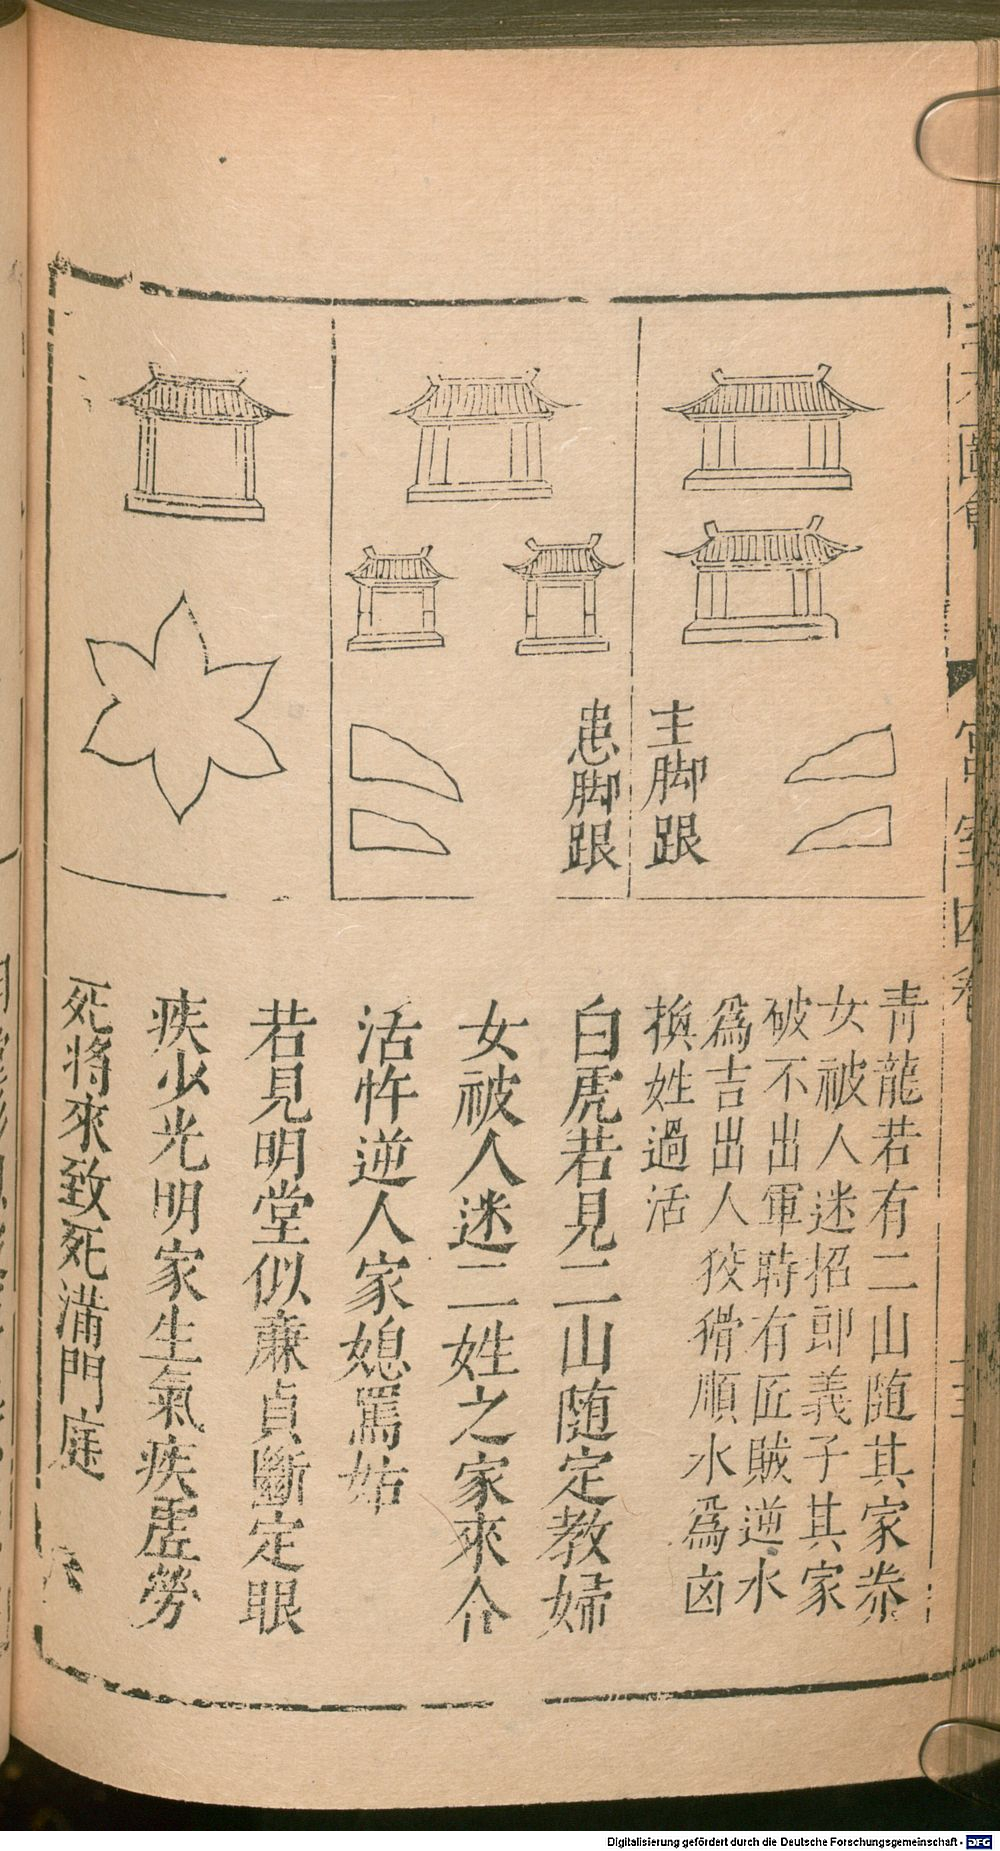 主脚跟
患脚跟
青龍若有二山随其家養
女被人迷招郎義子其家
破不出軍時有匠賊逆水
爲吉出人狡猾順水爲凶
換姓過活
白虎若見二山随定教婦
女被人迷二姓之家來合
活忤逆人家媳罵姑
若見明堂似廉貞斷定眼
疾少光明家生氣疾虛勞
死將來致死滿門庭
Digitalisierung gefördert durch die Deutsche Forschungsgemeinschaft - DFG